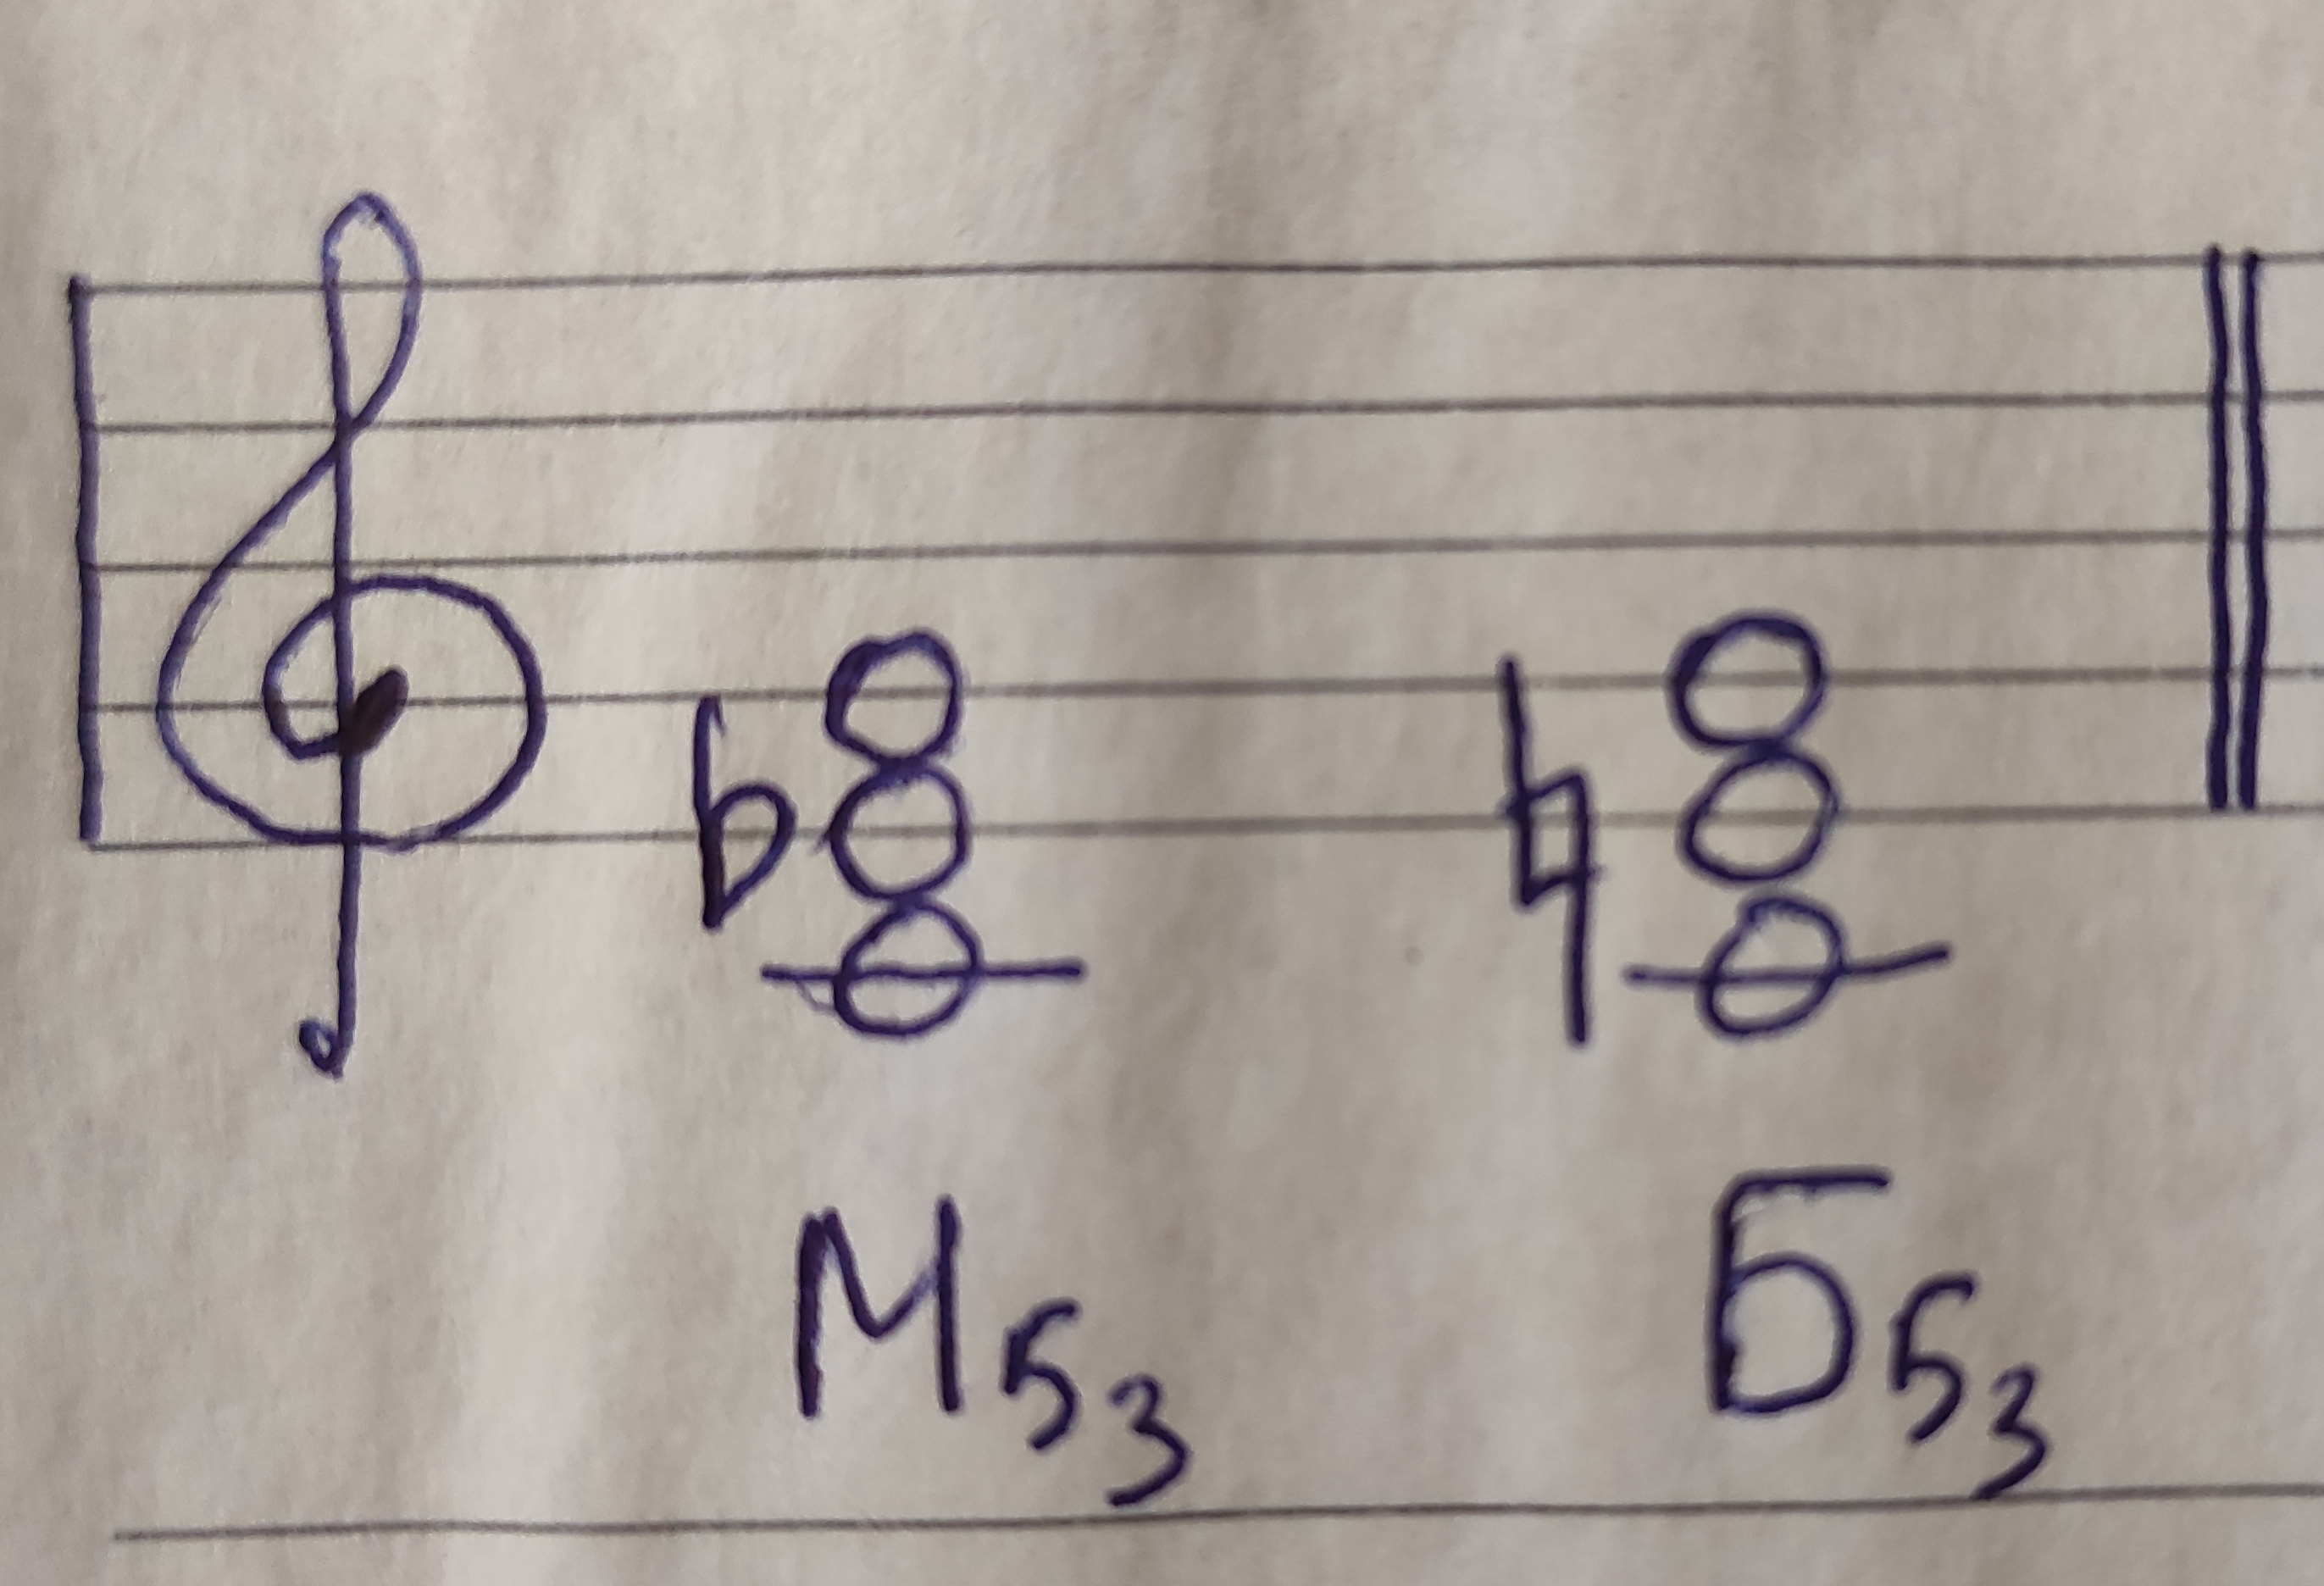 М53 Б53